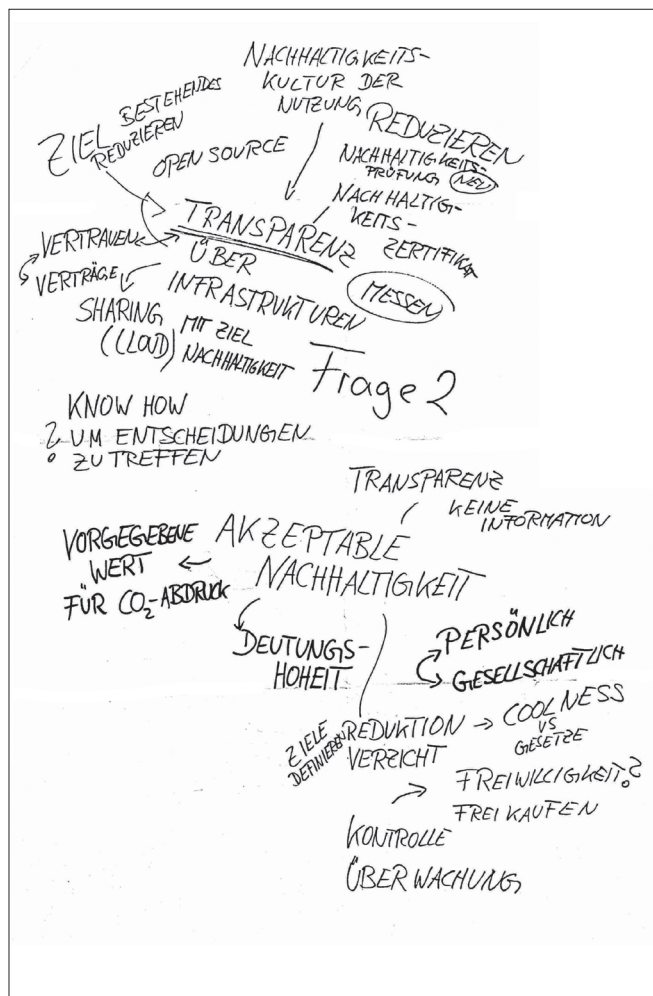 NACHHALTIGKEITS-
KULTUR DER
NUTZUNG
ZIEL BESTEHENDES
REDUZIEREN
OPEN SOURCE
REDUZIEREN
NACHHALTIGKEITS-
PRÜFUNG NEU
NACHHALTIG-
KEITS-
ZERTIFIKAT
TRANSPARENZ
ÜBER
INFRASTRUKTUREN
MESSEN
VERTRAUEN
VERTRÄGE
SHARING
(CLOUD)
MIT ZIEL
NACHHALTIGKEIT
Frage 2
KNOW HOW
? UM ENTSCHEIDUNGEN
ZU TREFFEN
TRANSPARENZ
KEINE
INFORMATION
VORGEGEBENE
WERT
FÜR CO₂-ABDRUCK
AKZEPTABLE
NACHHALTIGKEIT
DEUTUNGS-
HOHEIT
PERSÖNLICH
GESELLSCHAFTLICH
ZIELE
DEFINIEREN
REDUKTION
VERZICHT
COOLNESS
VS
GESETZE
FREIWILLIGKEIT?
FREI KAUFEN
KONTROLLE
ÜBERWACHUNG